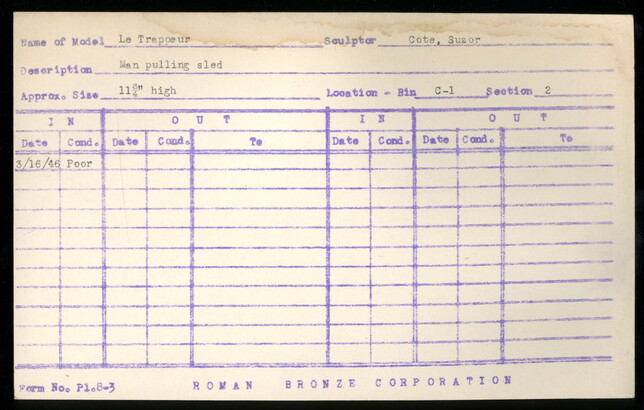 Name of Model Le Trappeur Sculptor Cote, Suzor
Description Man pulling sled
Approx. Size high Location - Bin C-1 Section 2
I N O U T I N O U T
Date Cond. Date Cond. To Date Cond. Date Cond. To
3/16/46 Poor
Form No. P1.8-3 ROMAN BRONZE CORPORATION